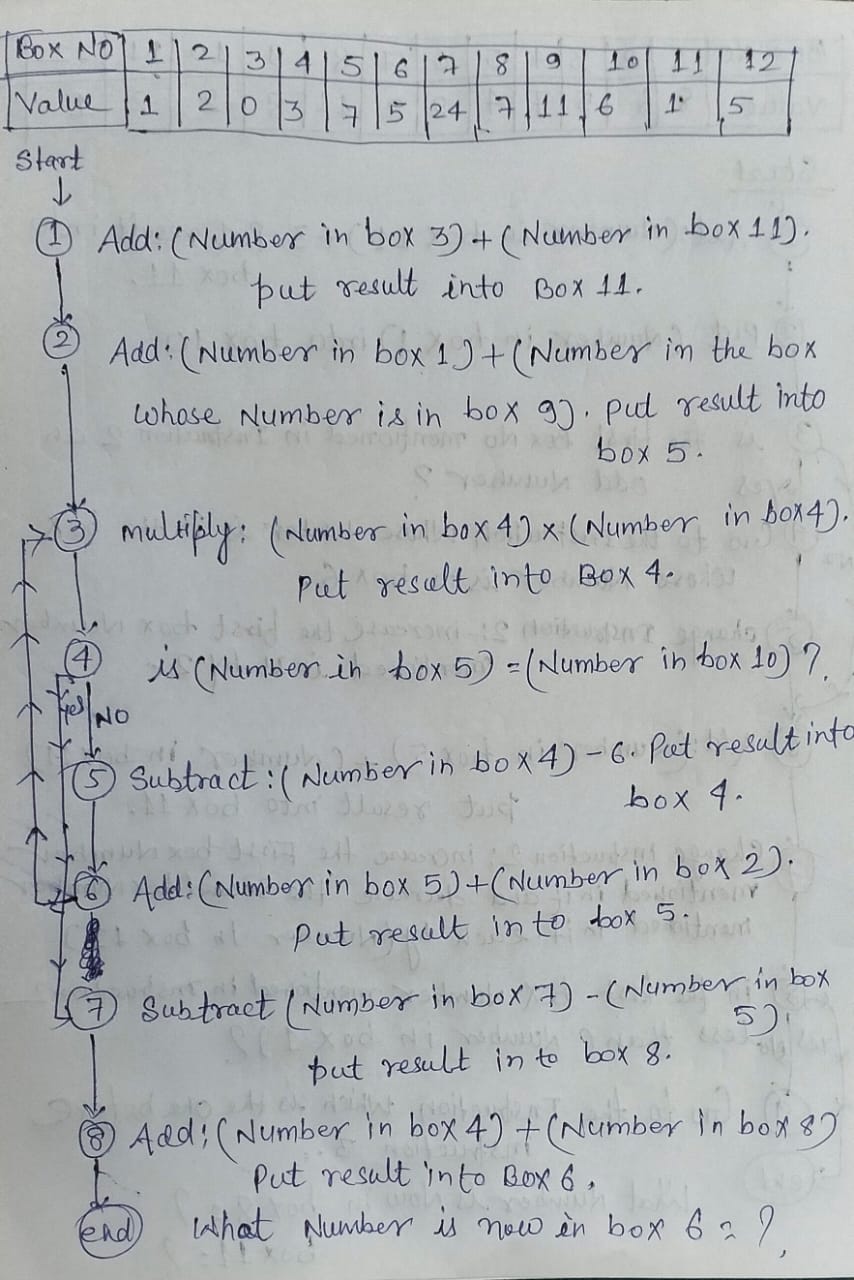 Box No 1 2 3 4 5 6 7 8 9 10 11 12
Value 1 2 0 3 7 5 24 7 11 6 1 5
Start
① Add: (Number in box 3) + (Number in box 11).
put result into Box 11.
② Add: (Number in box 1) + (Number in the box
whose Number is in box 9). Put result into
box 5.
③ multiply: (Number in box 4) x (Number in box 4).
Put result into Box 4.
④ is (Number in box 5) = (Number in box 10) ?
Yes NO
⑤ Subtract : (Number in box 4) - 6. Put result into
box 4.
⑥ Add: (Number in box 5) + (Number in box 2).
Put result in to box 5.
⑦ Subtract (Number in box 7) - (Number in box
5).
put result in to box 8.
⑧ Add: (Number in box 4) + (Number in box 8)
Put result into Box 6.
end What Number is now in box 6 = ?